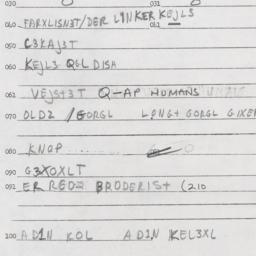 030 031
040 FARXLISN3T/DER LINKER KEJLS 041
050 C3KAJ3T
060 KEJLS QGL DISH
061 VEJST3T Q-AP HUMANS
070 OLD2 /GORGL LONGT GORGL GIXE
080 KNOP
090 G3XOXLT
091 ERRED2 BRODERIST (210
100 AD1N KOL AD1N KEL3XL